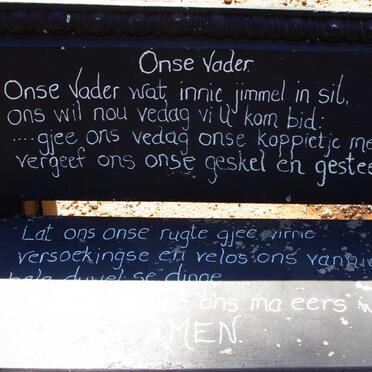 Onse Vader
Onse Vader wat innie jimmel in sit,
ons wil nou vedag vi U kom bid:
....gjee ons vedag onse koppietjie
vergeef ons onse geskel en
Lat ons onse rugte gjee virrie
versoekingse en velos ons
duwel se dinge
ons ma eers
AMEN.